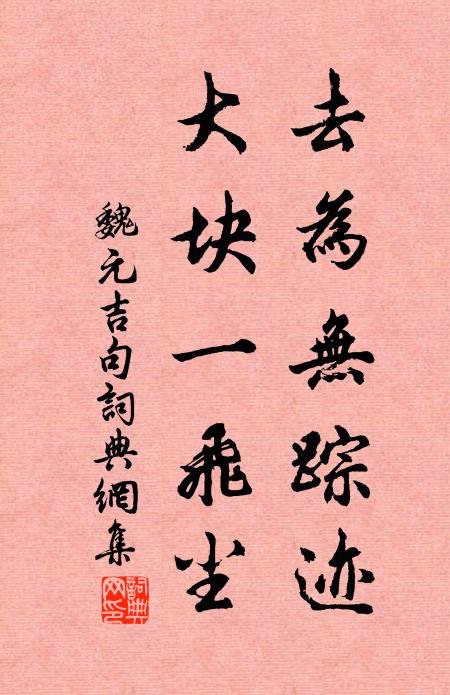 去為無踪迹
大块一飛尘
魏元吉句詞典網集
詞典网印